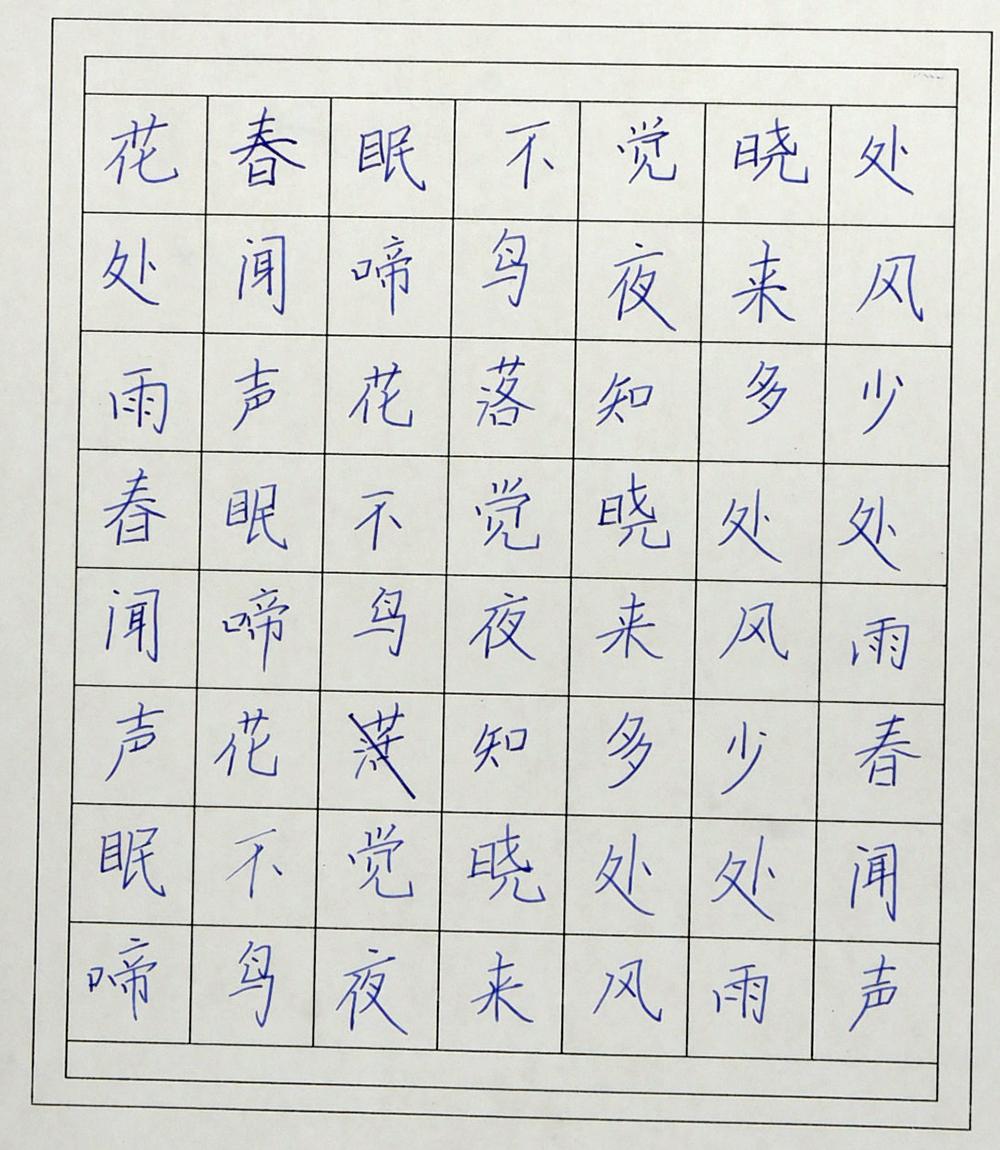 花春眠不觉晓处
处闻啼鸟夜来风
雨声花落知多少
春眠不觉晓处处
闻啼鸟夜来风雨
声花落知多少春
眠不觉晓处处闻
啼鸟夜来风雨声